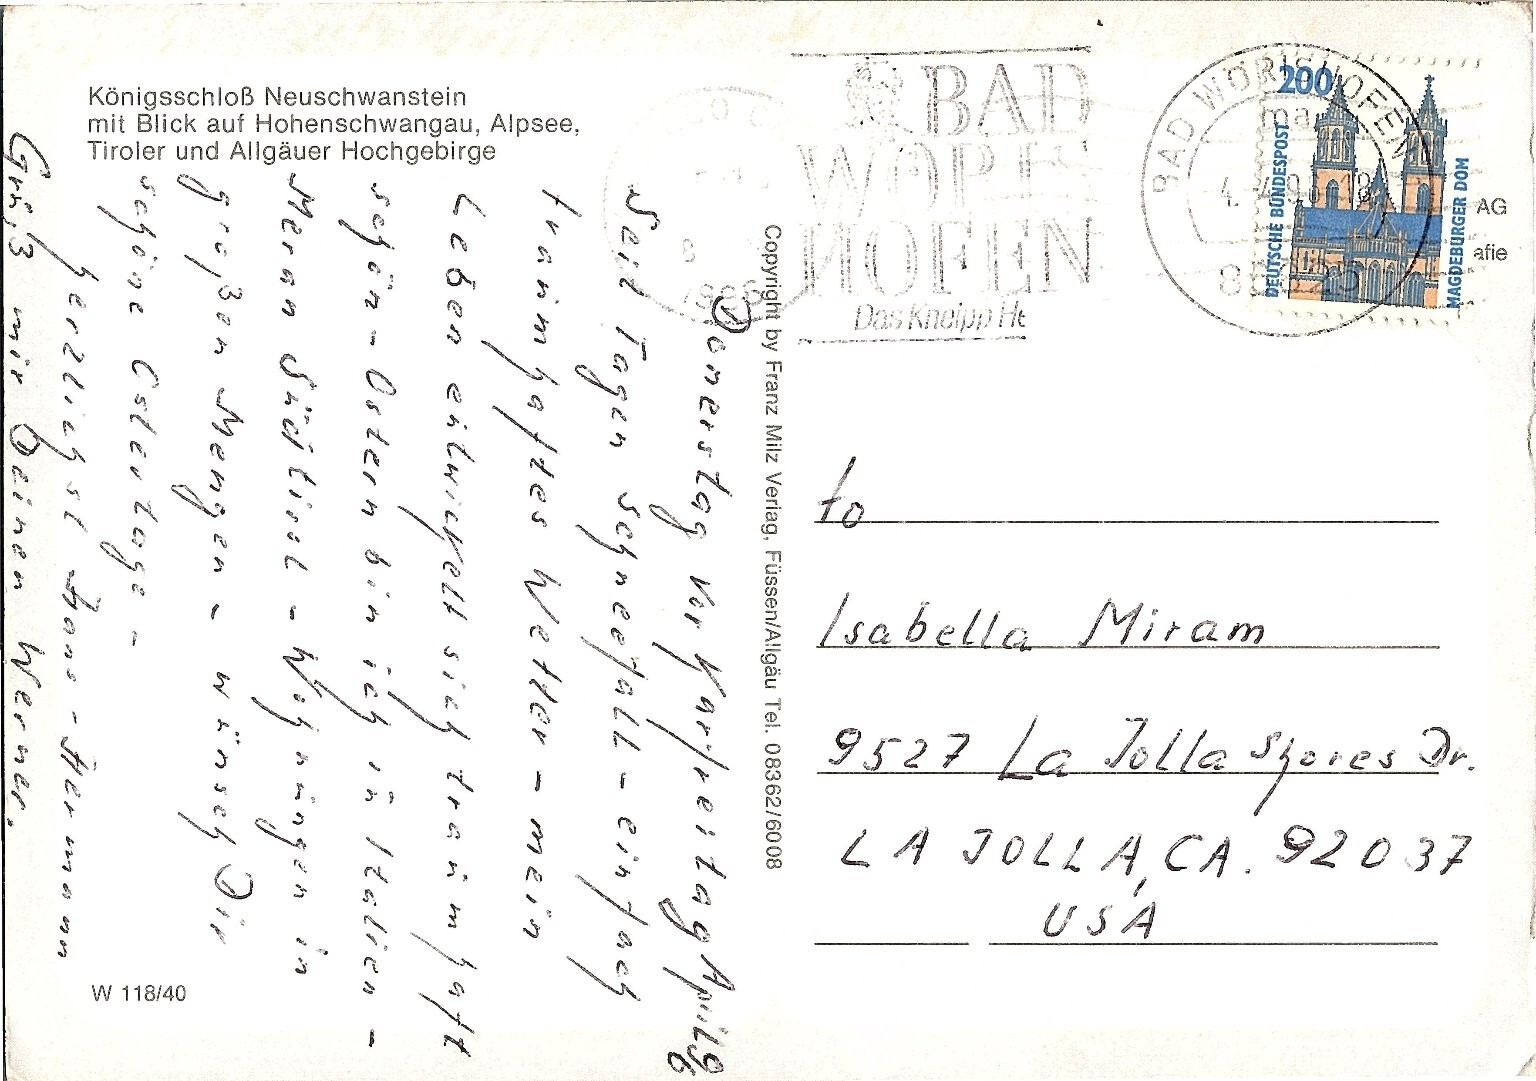 Königsschloß Neuschwanstein
mit Blick auf Hohenschwangau, Alpsee,
Tiroler und Allgäuer Hochgebirge
Donerstag vor Karfreitag April 96
Seit Tagen schneefall - einfach
traumhaftes Wetter - mein
Leben entwickelt sich traumhaft
schön - Ostern bin ich in Italien -
Meran Südtirol - Wohnungen in
großen Mengen - wünsch Dir
schöne Ostertage -
herzlichst Hans-Hermann
Grüß mir Deinen Werner.
W 118/40
Copyright by Franz Milz Verlag, Füssen/Allgäu Tel. 08362/6008
BAD
WÖRIS
HOFEN
Das Kneipp He
BAD WÖRISHOFEN
200
DEUTSCHE BUNDESPOST
MAGDEBURGER DOM
AG
afie
to
Isabella Miram
9527 La Jolla Shores Dr.
LA JOLLA, CA. 92037
USA